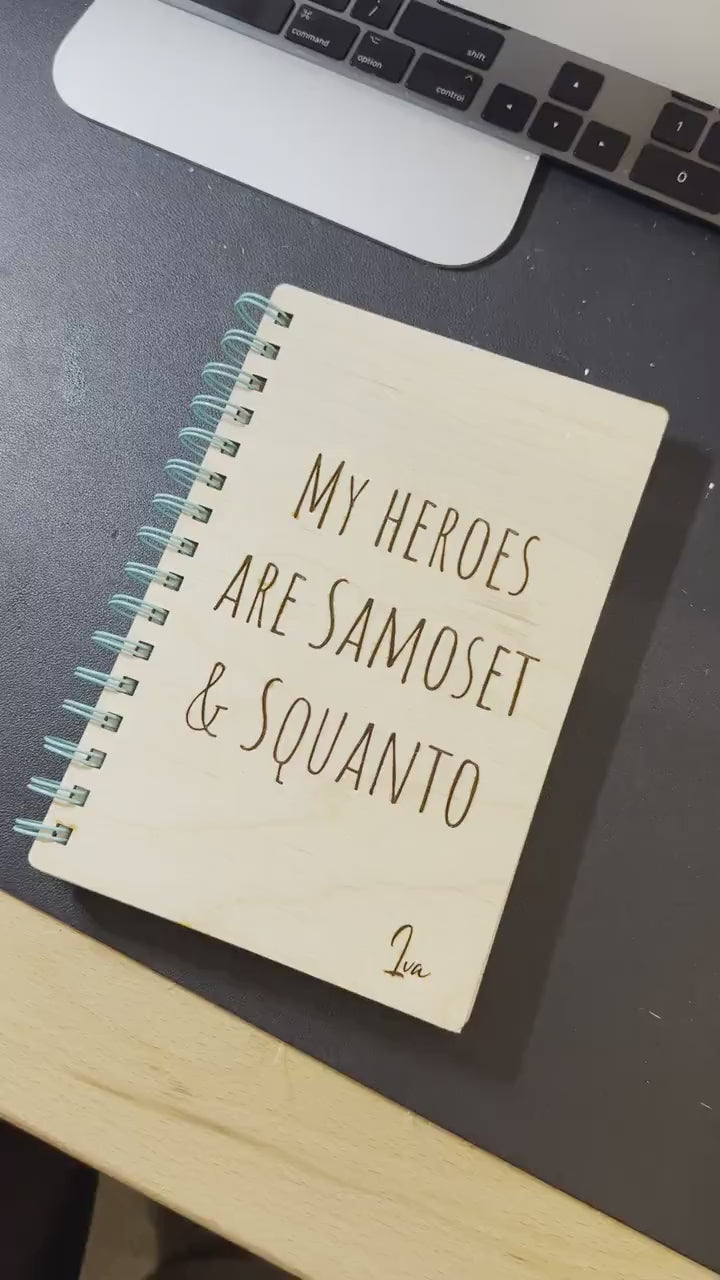 ⌘
command
⌥
option
/
shift
^
control
◂
▴
▾
▸
1
0
MY HEROES
ARE SAMOSET
& SQUANTO
Iva